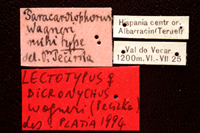 Paracardiophorus
wagneri
mihi type
det. P. Pecirka
Hispania centr or.
Albarracin (Teruel)
Val de Vecar
1200m. VI.-VII 25
LECTOTYPUS ♀
DICRONYCHUS
wagneri (Pecirka)
des. PLATIA 1994